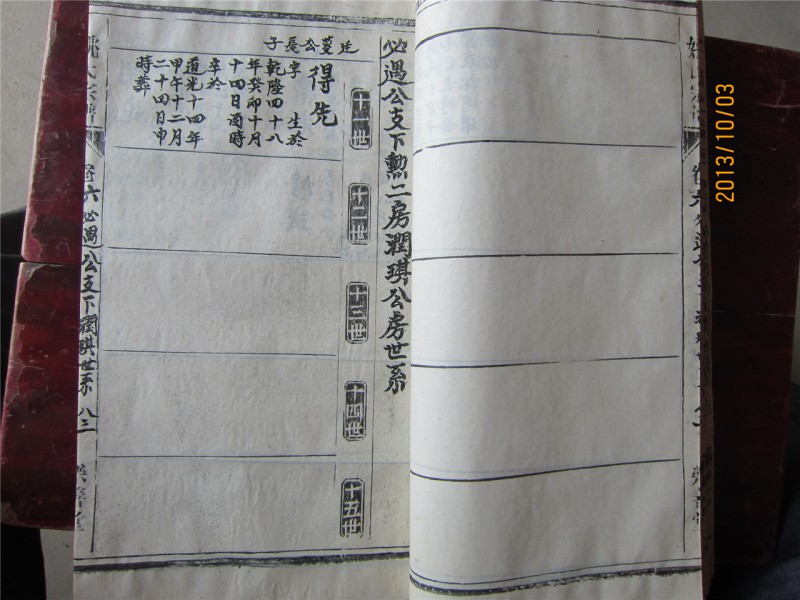 必遇公支下勲二房潤琪公房世系
十一世
十二世
十三世
十四世
十五世
廷蓂公長子
得先
字 生於
乾隆四十八
年癸卯十月
十四日酉時
卒於
道光十四年
甲午十二月
二十四日申
時葬
姚氏宗譜
卷六 必遇公支下潤琪世系 八三
2013/10/03